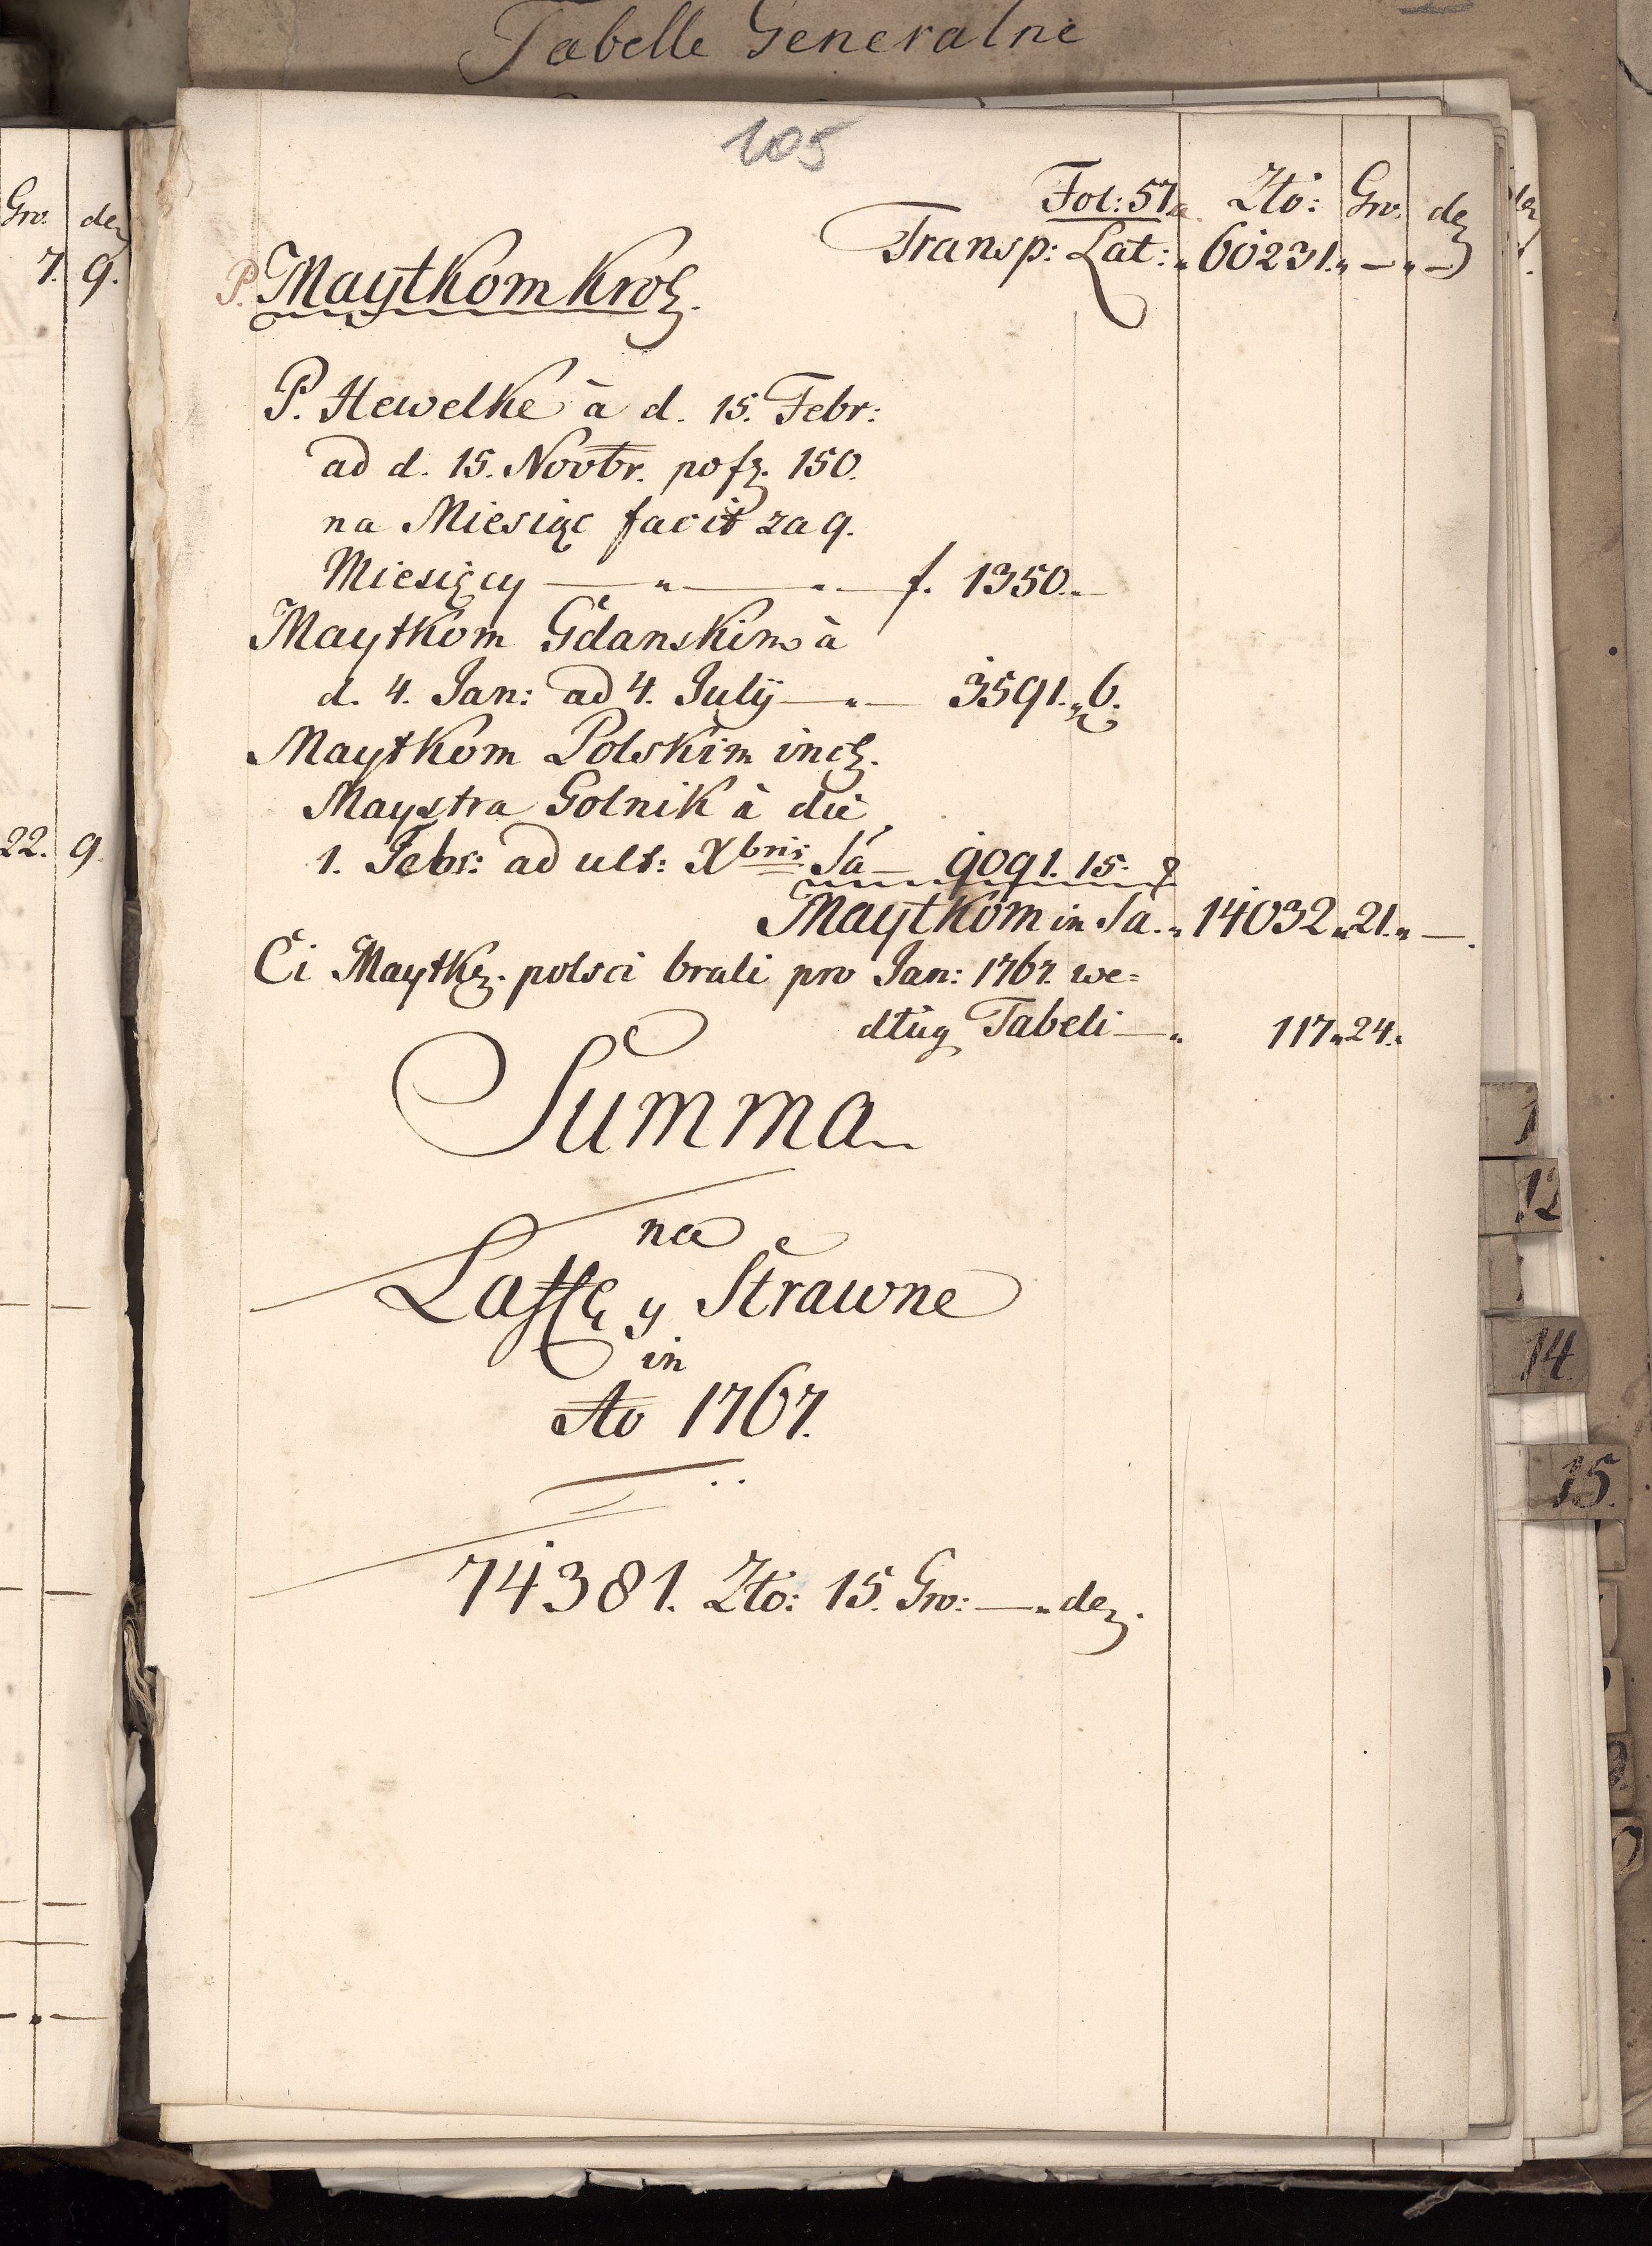 Tabelle Generalne
105
Fol: 57a. Zło: Gro. den
Transp: Lat: „ 60231. „ — „ —
Gro. den
7. 9.
P. Maytkom Krol.
P. Hewelke à d. 15. Febr:
ad d. 15. Novbr. po fz. 150.
na Miesiąc facit za 9.
Miesięcy — „ — „ — f. 1350. „ —
Maytkom Gdanskim à
d. 4. Jan: ad 4. July — „ — 3591. „ 6.
Maytkom Polskim incl.
Maystra Golnik à die
22. 9.
1. Febr: ad ult: Xbris Sa — 9091. 15.
Maytkom in Sa. „ 14032 „ 21. „ —.
Ci Maytkz. polsci brali pro Jan: 1767. we=
dług Tabeli — „ 117 „ 24. „
Summa
na
Laffę y Strawne
in
Ao 1767.
74381. Zło: 15. Gro: — „ den.
12
14
15.